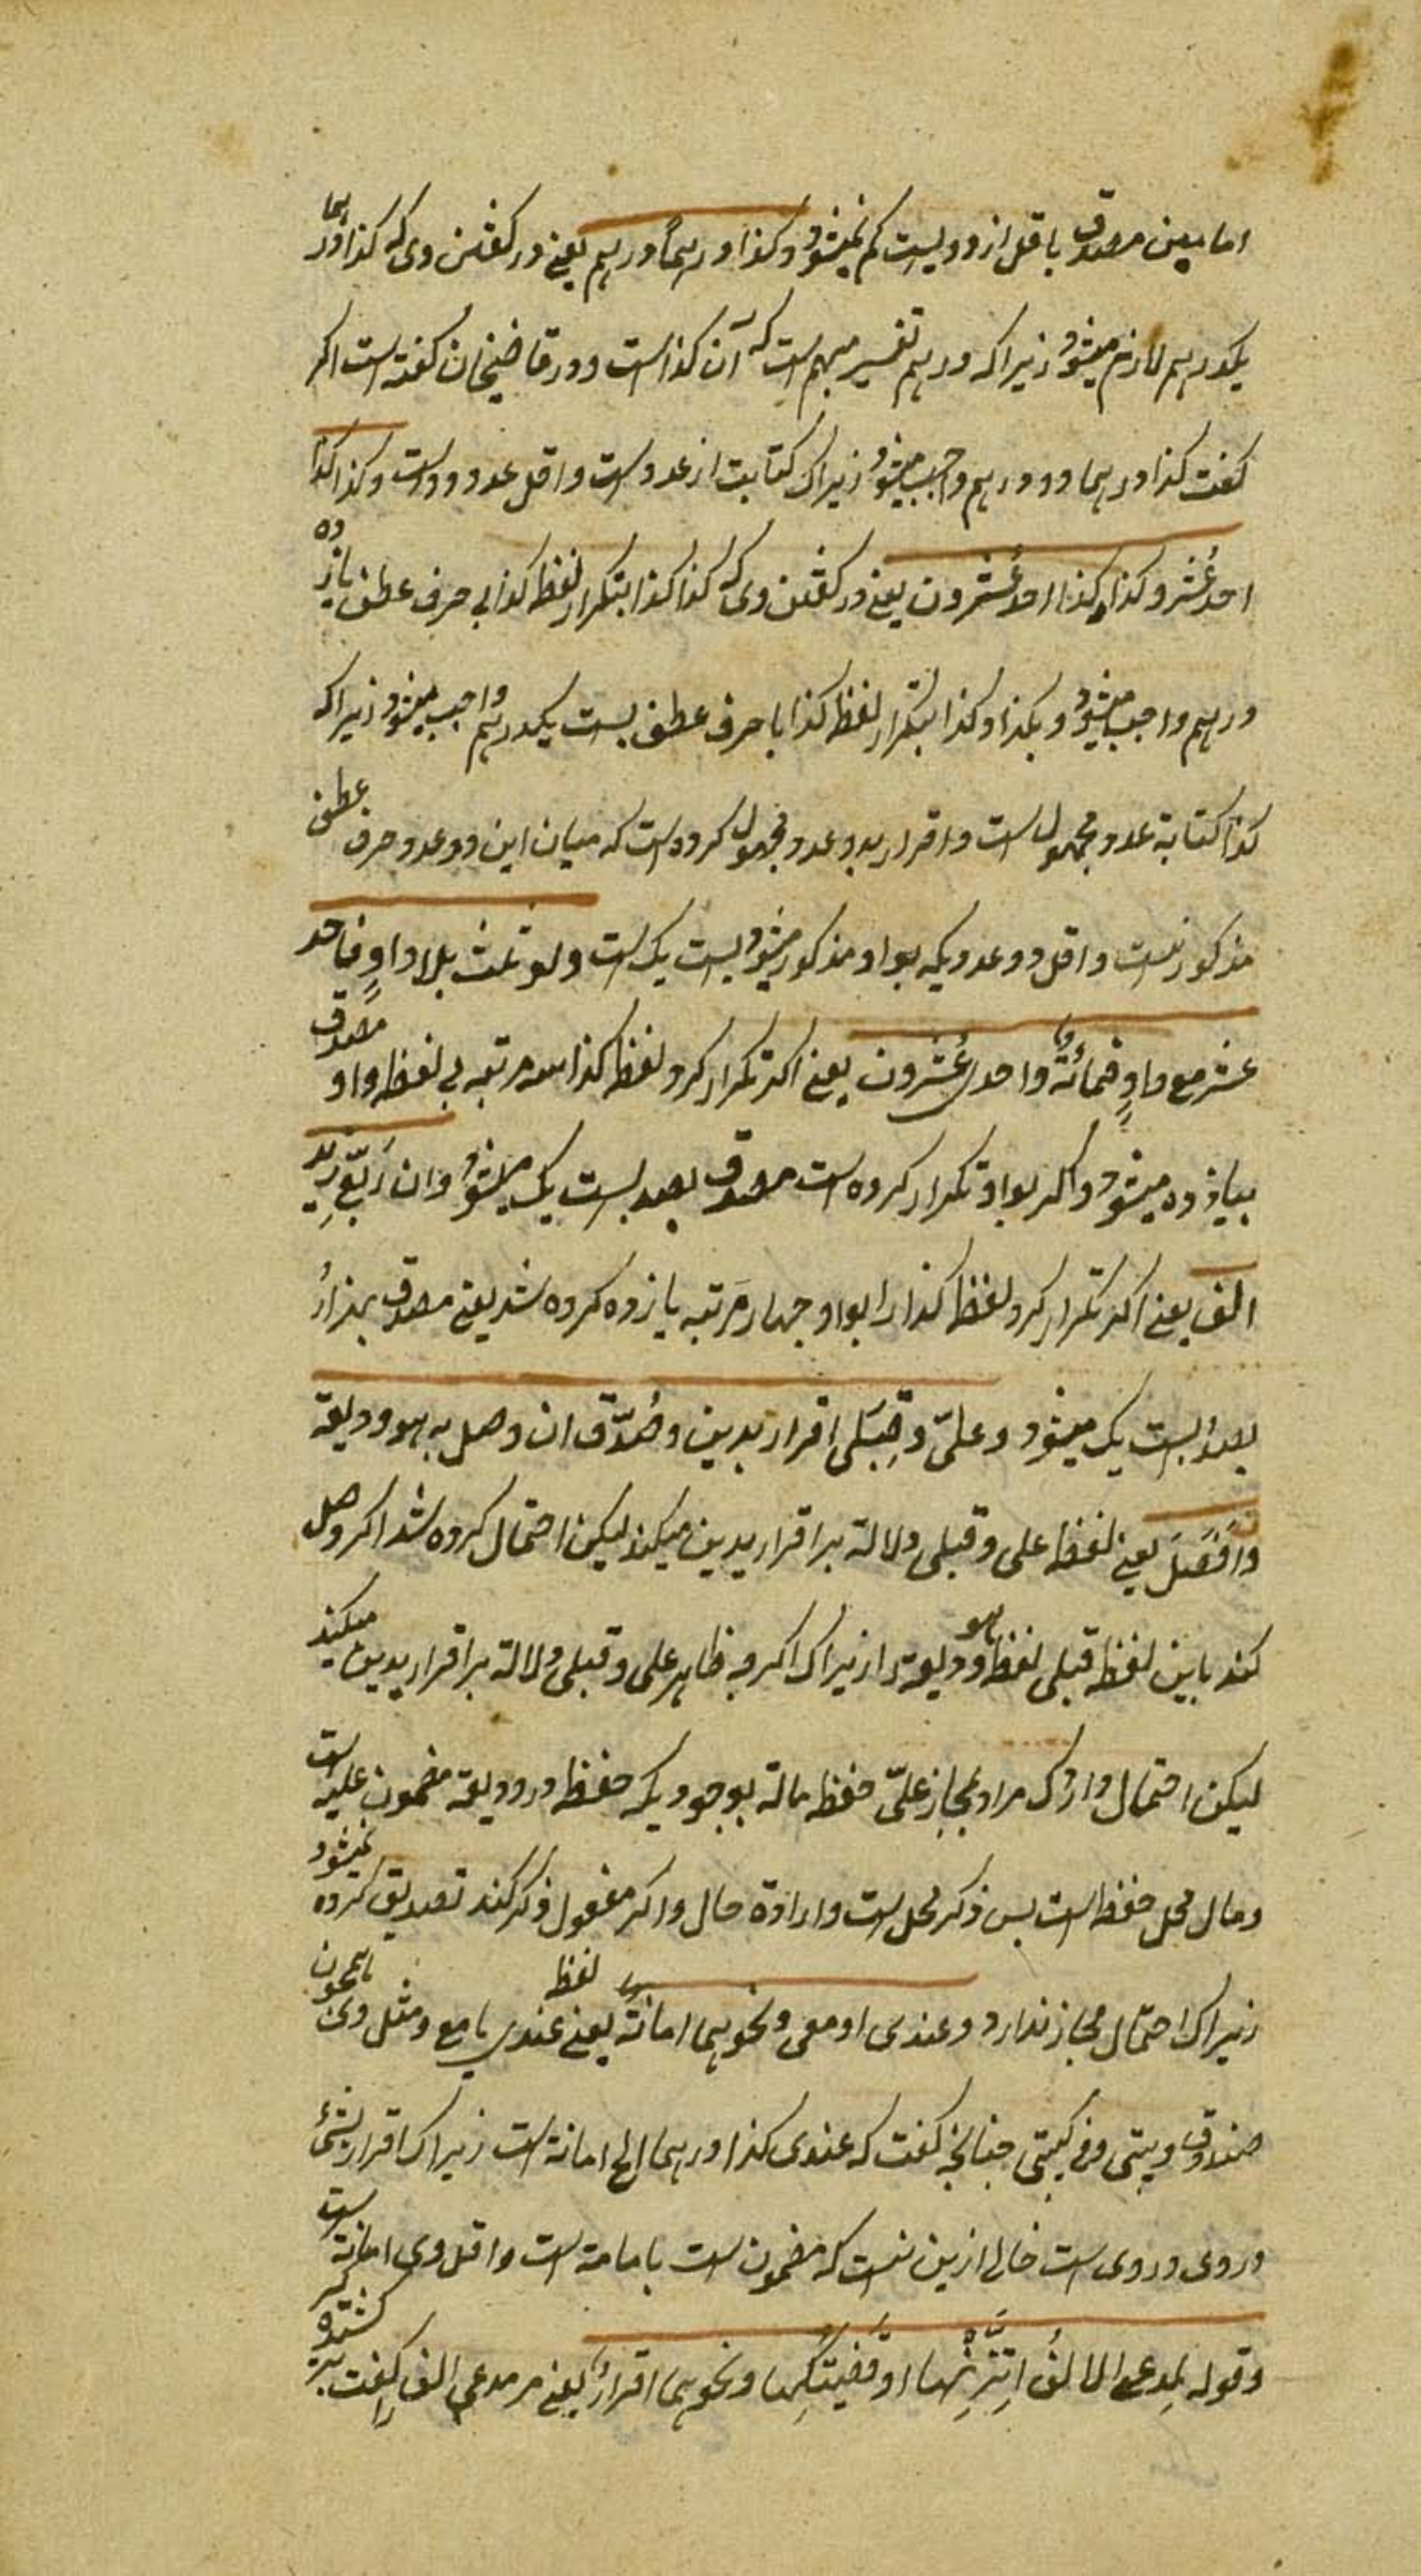 اما بیقین مصدق باقل از دویست کم نمیشود و کذا درهماً درهم یعنی در کفتن وی که کذا درهما
یکدرهم لازم میشود زیراکه درهم تفسیر مبهم است که آن کذا است و در قاضیخان کفته است اکر
کفت کذا درهما دو درهم واجب میشود زیراک کنایت از عدد است و اقل عدد دو است و کذا کذا
احد عُشر و کذا و کذا احد عُشرون یعنی در کفتن وی که کذا کذا بتکرار لفظ کذا بی حرف عطف یازده
درهم واجب میشود و بکذا و کذا بتکرار لفظ کذا با حرف عطف بیست یکدرهم واجب میشود زیراکه
کذا کنایة عدد مجهول است و اقرار بدو عدد مجهول کرده است که میان این دو عدد حرف عطف
مذکور نیست و اقل دو عدد یکه بواو مذکور میشود بیست یک است ولو ثلث بلا واوٍ فاحد
عشر مع واوٍ فمائةٌ واحد و عُشرون یعنی اکر تکرار کرد لفظ کذا سه مرتبه بی لفظ واو مصدق
بیازده میشود واکر بواو تکرار کرده است مصدق بصد بیست یک میشود وان رَبّع زِید
الف یعنی اکر تکرار کرد لفظ کذا را بواو چهار مَرتبه یازده کرده شد یعنی مصدق بهزار
بصد بیست یک میشود وعلیّ وقِبَلی اقرار بدین وصُدّق ان وصل به هو ودیعة
وان فَصَلَ یعنی لفظ علی وقبلی دلالة بر اقرار بدین میکند لیکن احتمال کرده شد اکر وصل
کند باین لفظ قبلی لفظ هو ودیعة را زیراک اکرچه ظاهر علی وقبلی دلالة بر اقرار بدین میکند
لیکن احتمال دارد ک مراد بمجاز علیّ حفظ ماله بوجود یکه حفظ در ودیعة مضمون علیه است
ومال محل حفظ است پس ذکر محل است وارادة حال واکر مفصول ذکر کند تصدیق کرده نمیشود
زیراک احتمال مجاز ندارد وعندی او معی ونحوهما امانةٌ یعنی لفظ عندی یا مع ومثل وی همچون
صندوقی وبیتی وفی کیسی چنانچه کفت که عندی کذا درهما الخ امانة است زیراک اقرار بشیء
در وی در وی است خالی ازین نیست که مضمون است یا امانة است واقل وی امانة است
وقوله لمدعی الالف اِتَّزِنْها او قَضَیْتُکَها ونحوهما اقرارٌ یعنی مر مدعی الف را کفت